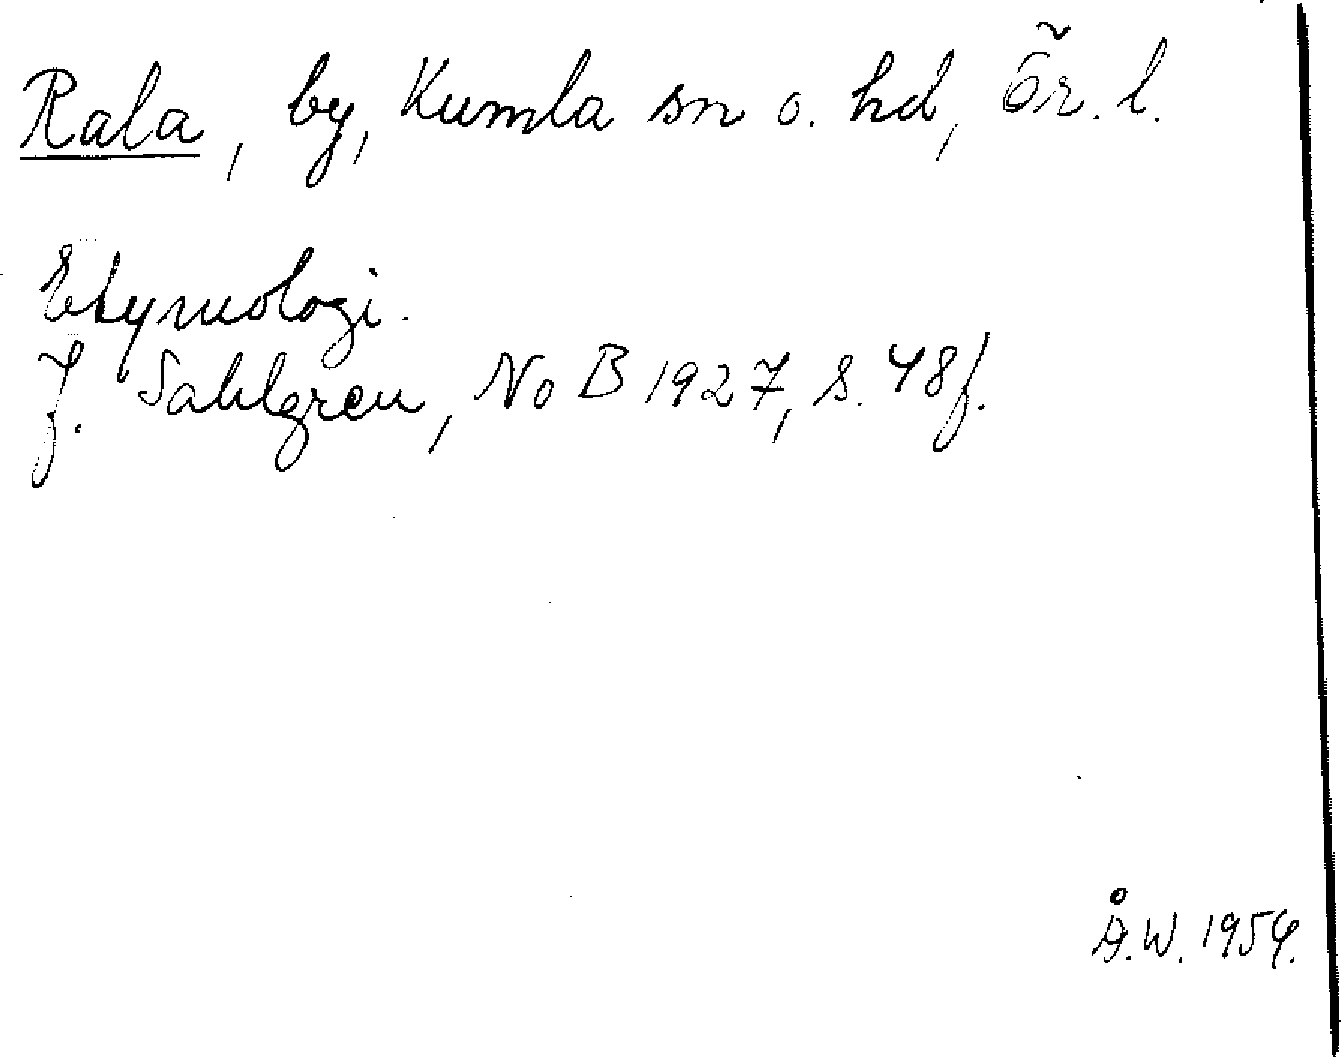 Rala, by, Kumla sn o. hd, Ör. l.
Etymologi.
J. Sahlgren, NoB 1927, s. 48f.
Å.W. 1954.